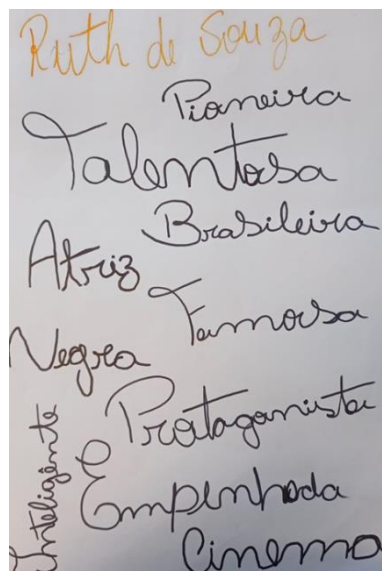 Ruth de Souza
Pioneira
Talentosa
Brasileira
Atriz
Famosa
Negra
Protagonista
Inteligênte
Empenhada
Cinema